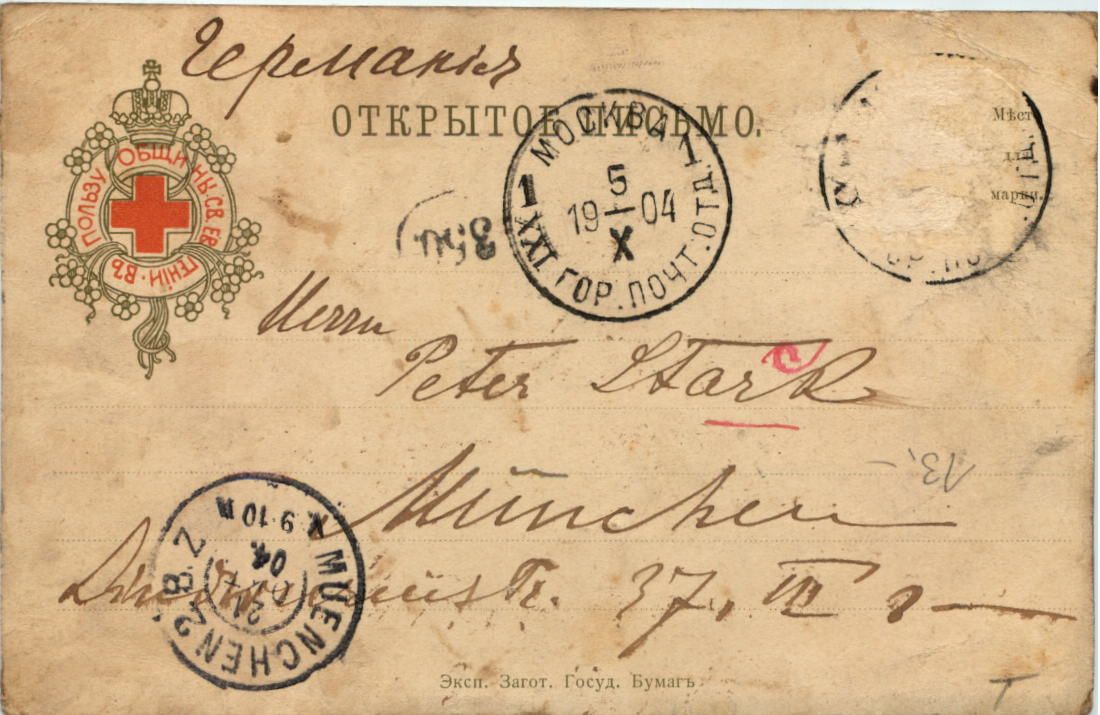 Германія
ОТКРЫТОЕ ПИСЬМО.
ВЪ ПОЛЬЗУ ОБЩИНЫ СВ. ЕВГЕНІИ
МОСКВА 1
1
5
19 04
X
XXI ГОР. ПОЧТ. ОТД.
Мѣсто
для
марки.
ГОР. ПО ОТД.
Herrn
Peter Stark
München
37, III
13,-
MUENCHEN 2 B.Z
04.
9-10
Эксп. Загот. Госуд. Бумагъ